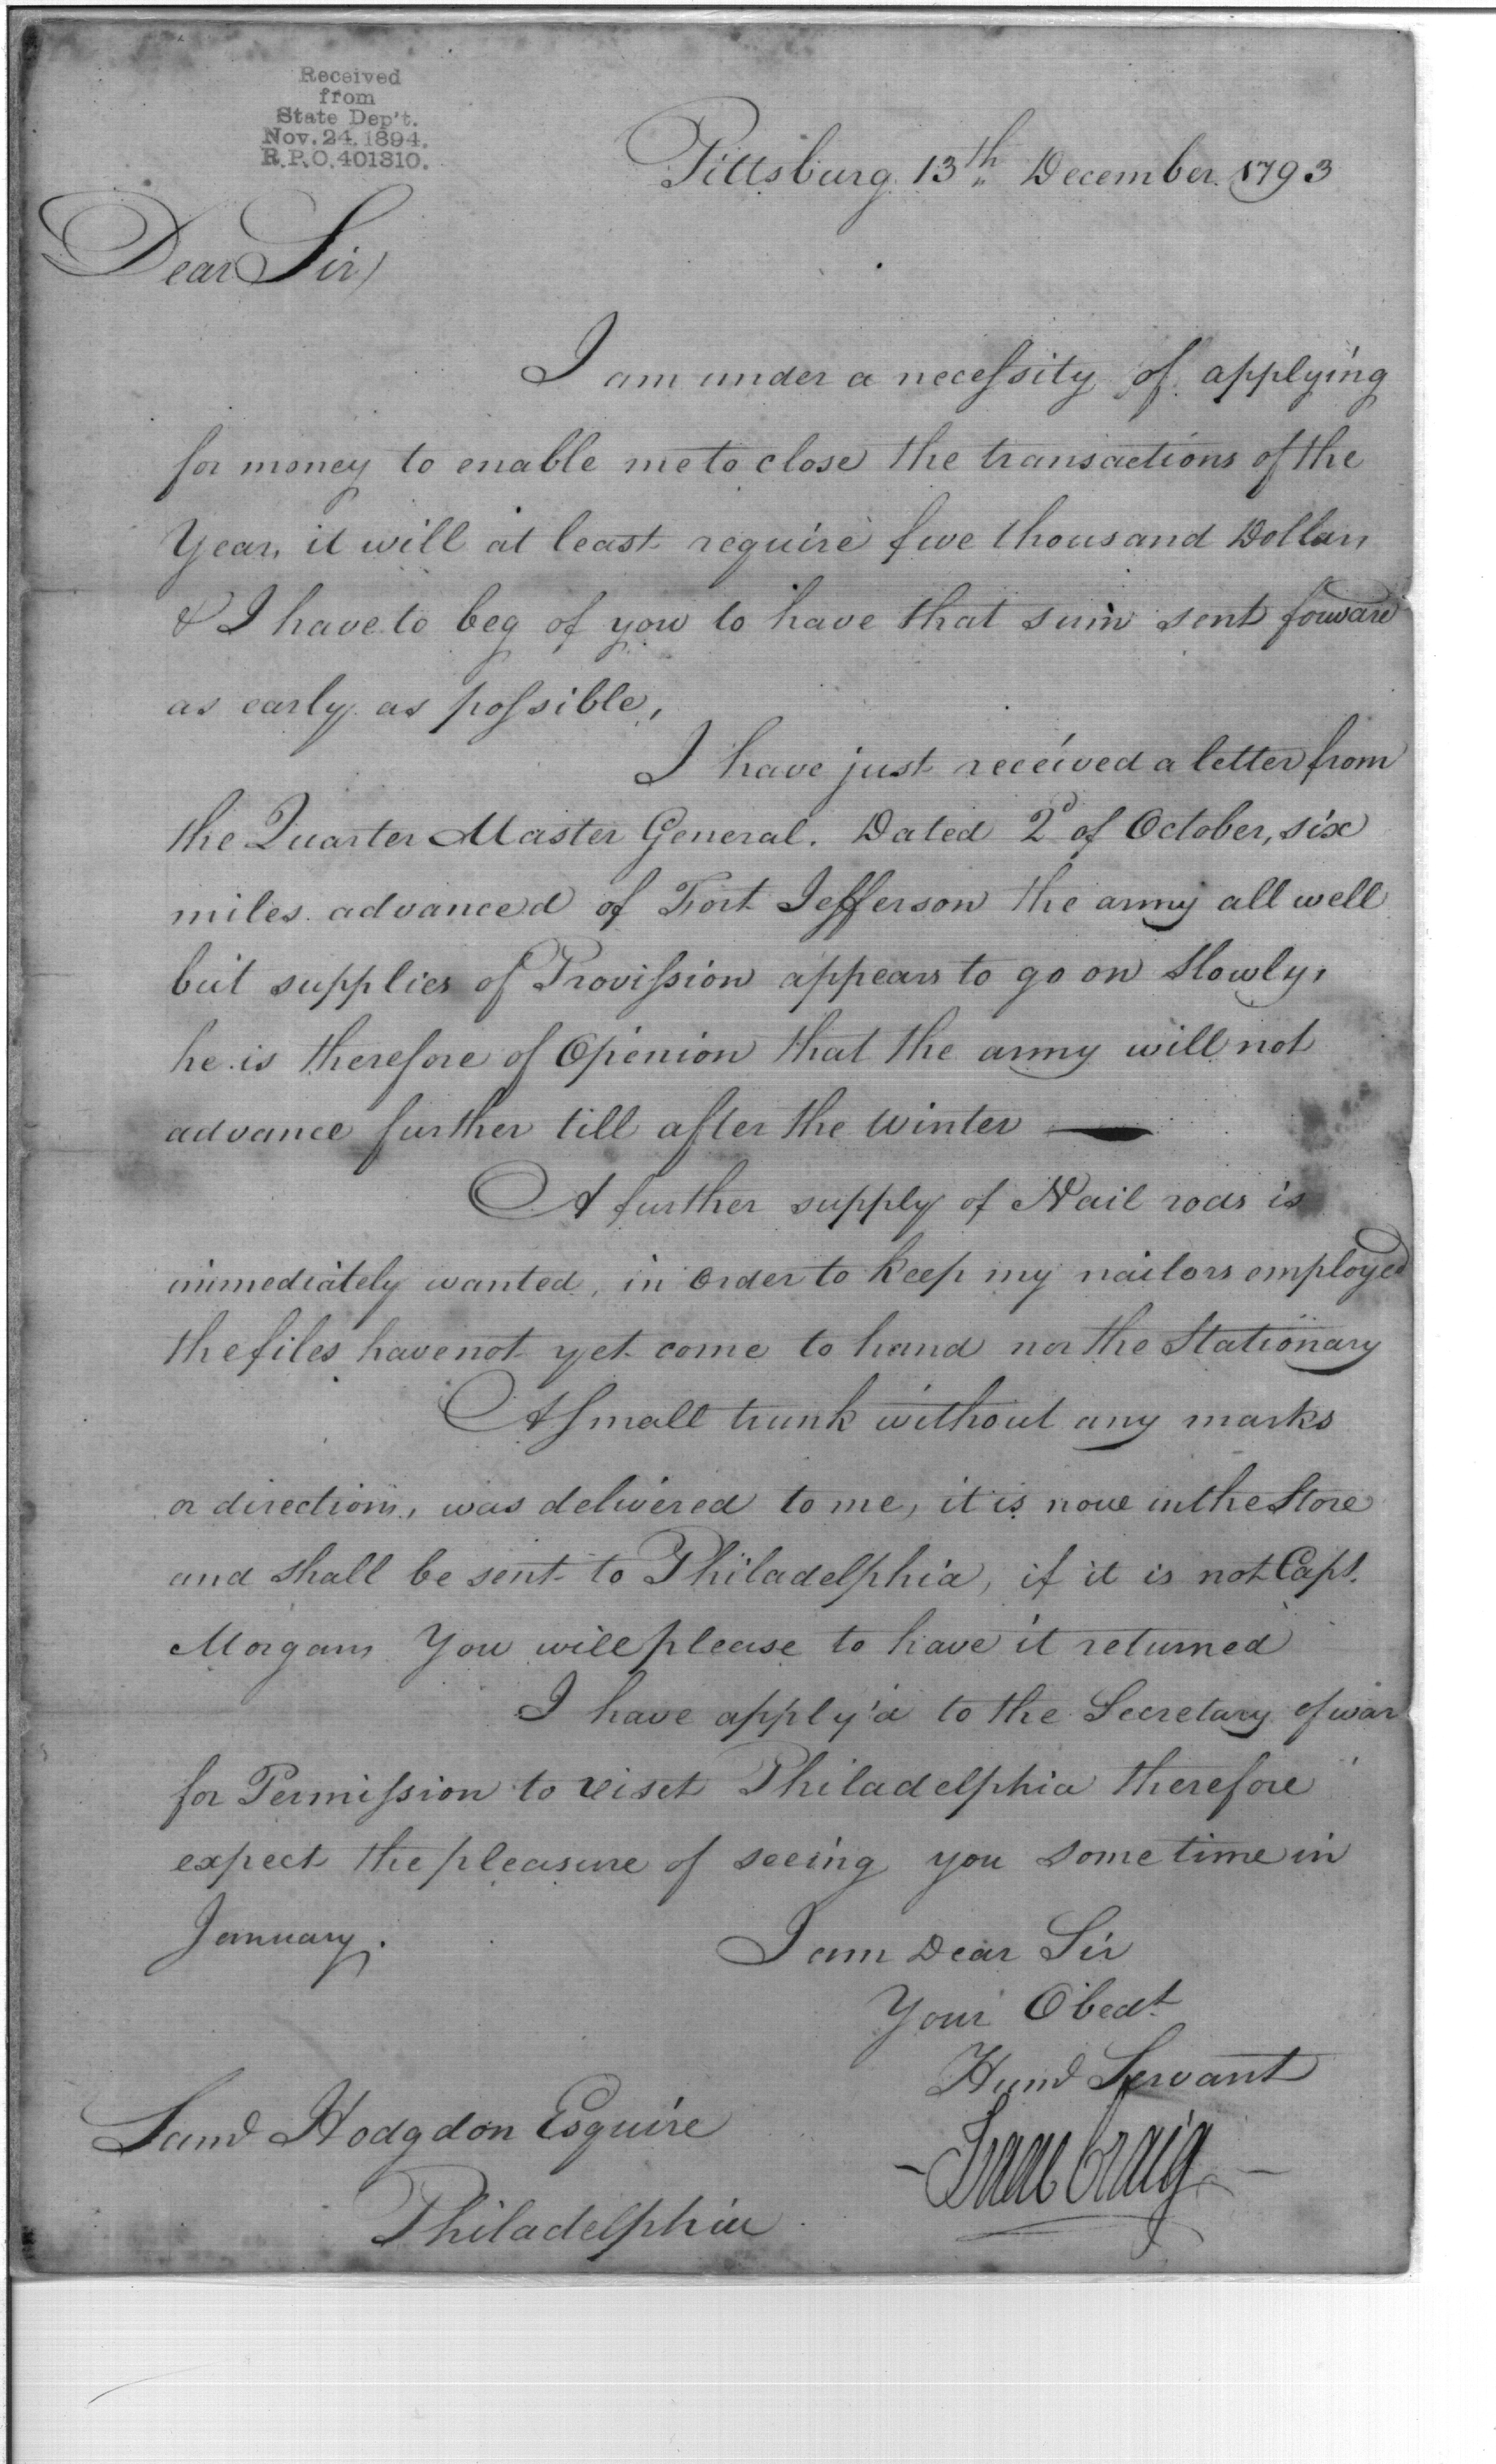 Received
from
State Dep't.
Nov. 24. 1894.
R.P.O. 401310.
Pittsburg 13th December. 1793
Dear Sir,
I am under a necessity of applying
for money to enable me to close the transactions of the
Year, it will at least require five thousand Dollars
& I have to beg of you to have that sum sent forward
as early as possible,
I have just received a letter from
the Quarter Master General. Dated 2d of October, six
miles advanced of Fort Jefferson the army all well
but supplies of Provission appears to go on Slowly,
he is therefore of Openion that the army will not
advance further till after the Winter —
A further supply of Nail rods is
immediately wanted, in Order to keep my nailors employed
the files have not yet come to hand nor the Stationary
A Small trunk without any marks
or directions, was delivered to me, it is now in the Store
and shall be sent to Philadelphia, if it is not Capt.
Morgans You will please to have it returned
I have apply'd to the Secretary of war
for Permission to viset Philadelphia therefore
expect the pleasure of seeing you some time in
January.
I am Dear Sir
Your Obedt
Humd Servant
Isaac Craig
Samd Hodgdon Esquire
Philadelphia